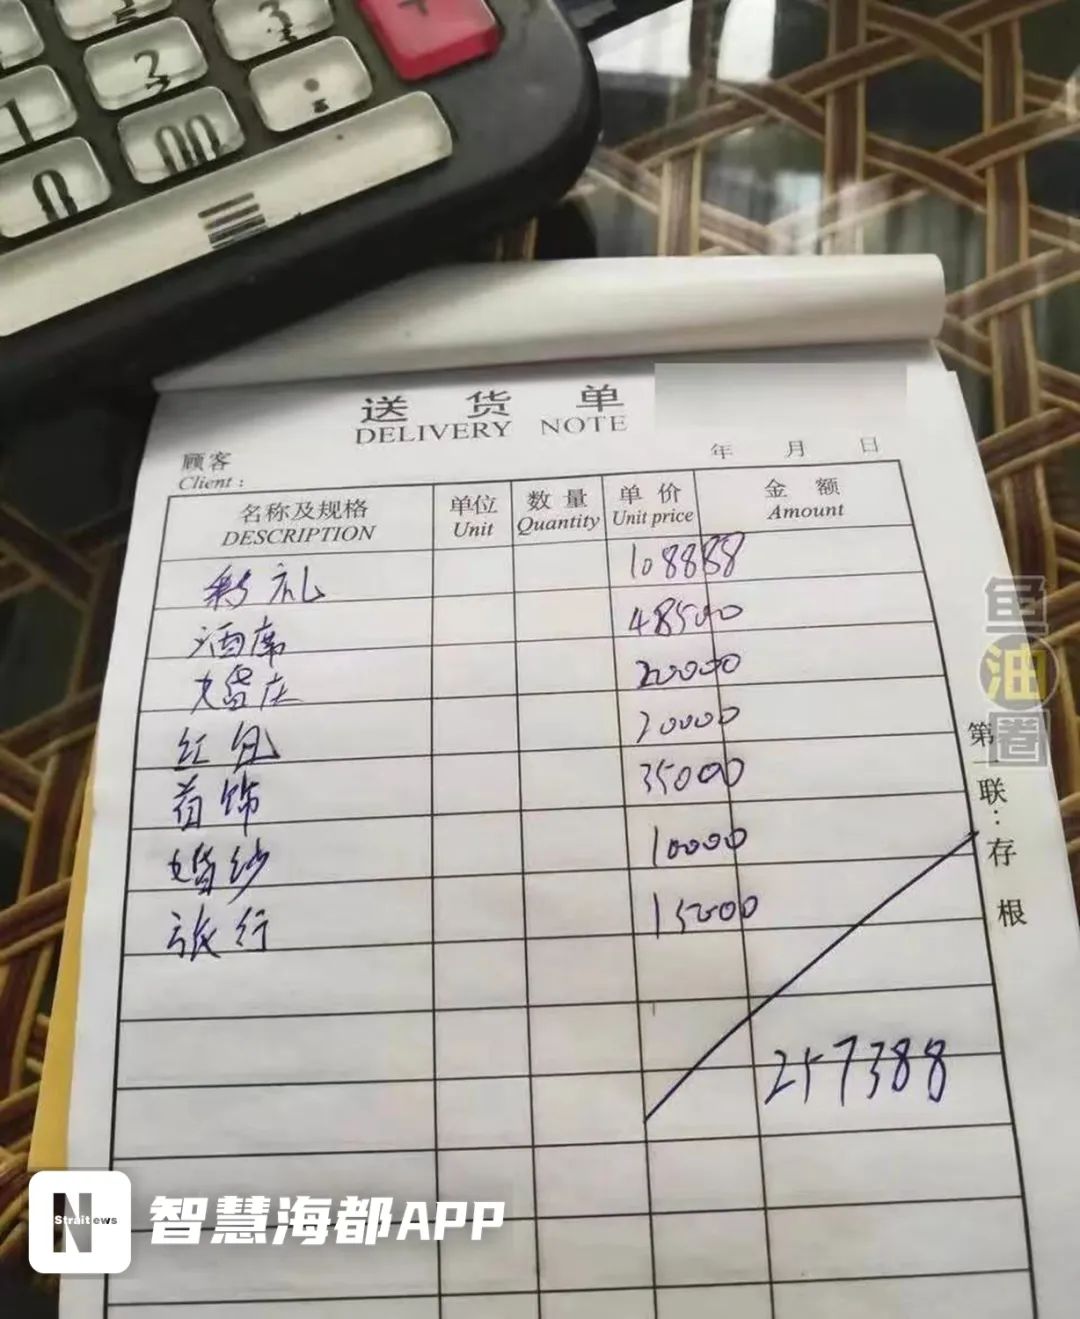 3
+
2
.
1
00
0
送货单
DELIVERY NOTE
年 月 日
顾客
Client :
名称及规格 单位 数量 单价 金额
DESCRIPTION Unit Quantity Unit price Amount
彩礼 108888
酒席 48500
婚庆 20000
红包 20000
首饰 35000
婚纱 10000
旅行 15000
257388
第一联：存根
鱼油圈
N
Straitews
智慧海都APP